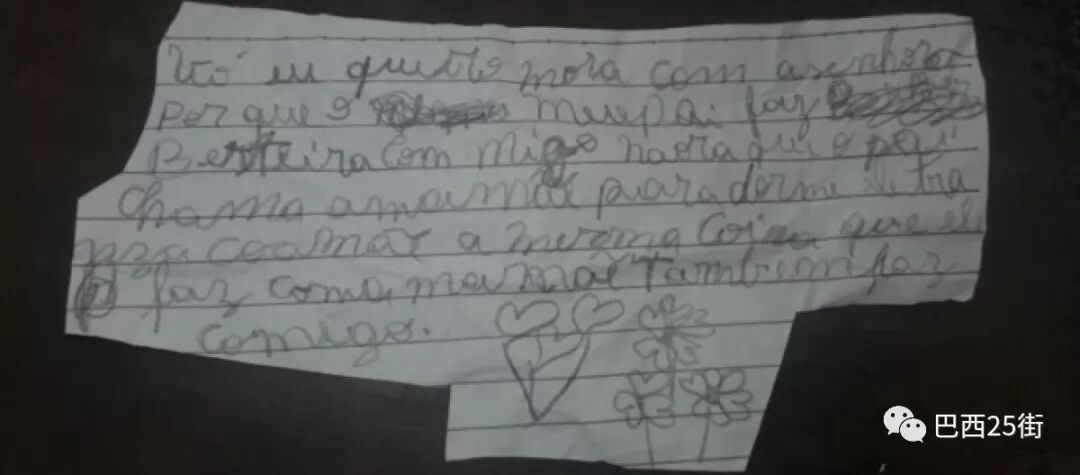 Vó eu quero mora com a senhora
Por que o meu pai faz
Besteira com migo na ora que o pai
chama a mamãe para dormi
a mesma coisa que ele
faz com a mamãe também faz
comigo.
巴西25街